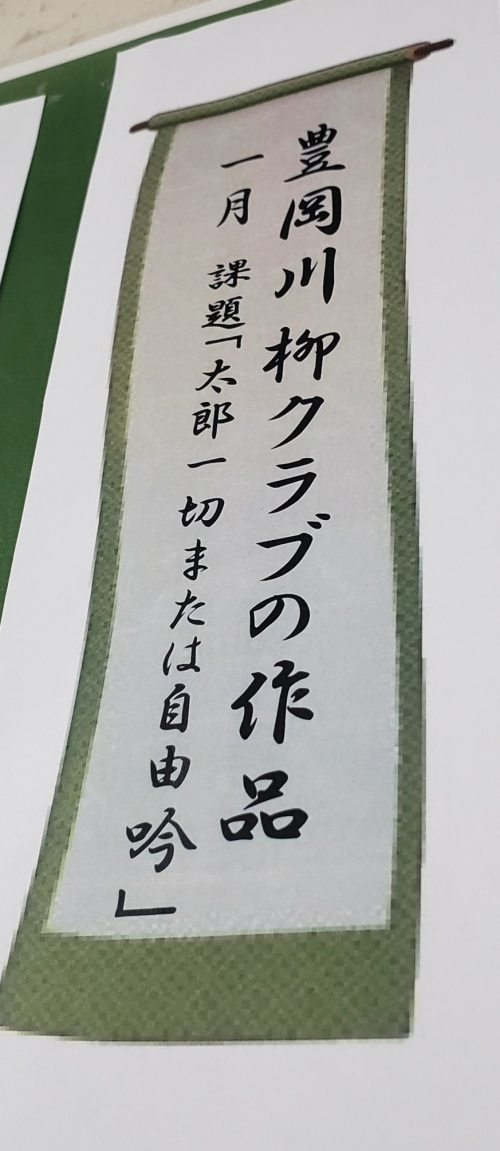 豊岡川柳クラブの作品
一月 課題「太郎一切または自由吟」